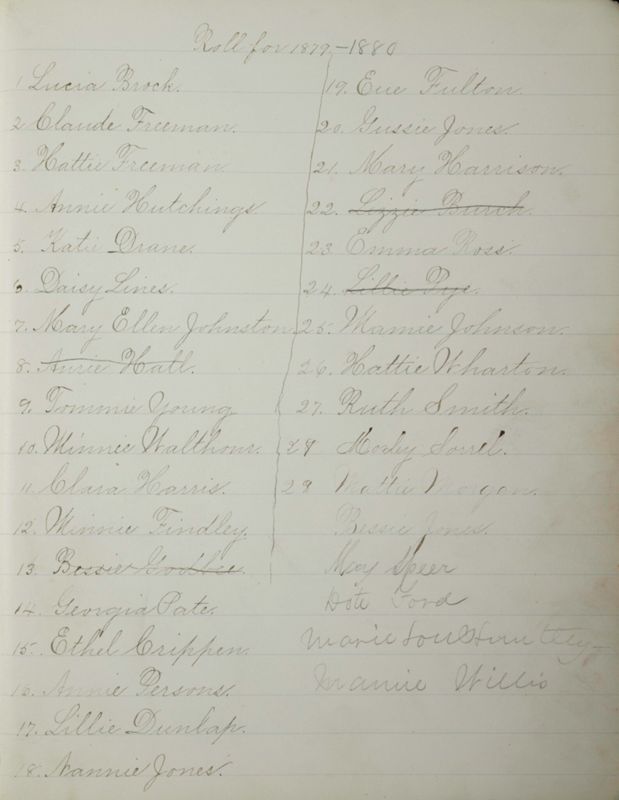 Roll for 1879-1880
1 Lucia Brock.
2 Claude Freeman.
3. Hattie Freeman
4. Annie Hutchings.
5. Katie Drane.
6. Daisy Lines.
7. Mary Ellen Johnston
8. Annie Hall.
9. Tommie Young
10. Minnie Walthour.
11. Clara Harris.
12. Minnie Findley.
13. Bessie
14. Georgia Pate.
15. Ethel Crippen.
16. Annie Persons.
17. Lillie Dunlap.
18. Nannie Jones.
19. Eve Fulton.
20. Gussie Jones.
21. Mary Harrison.
22. Lizzie Burch.
23. Emma Ross.
24. Lillie Pye.
25. Mamie Johnson.
26. Hattie Wharton.
27. Ruth Smith.
29 Sorrel.
29 Mattie Morgan.
Bessie Jones.
May Speer
Dote Ford
Marie Lou Huntley
Mamie Willis